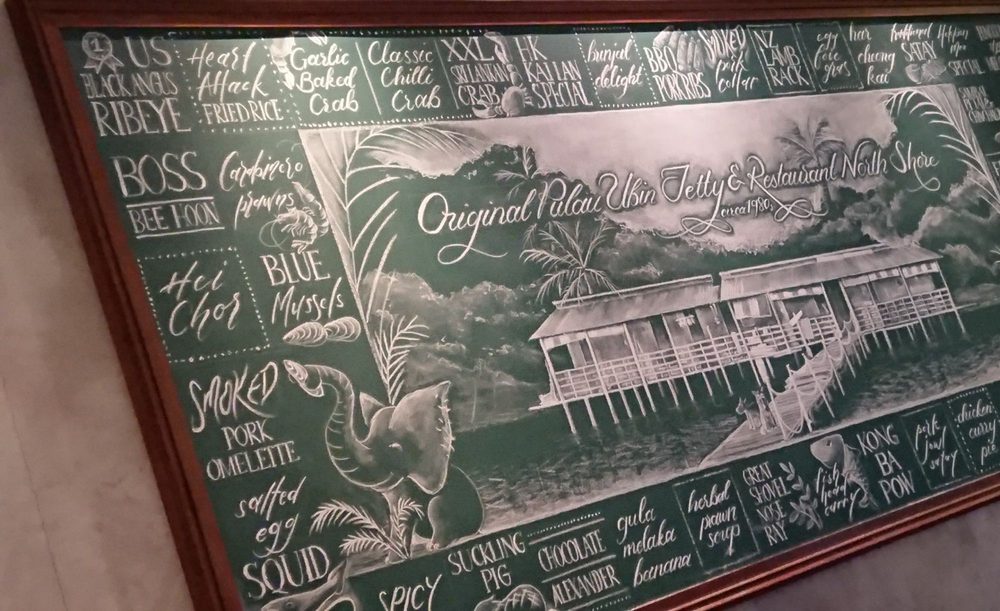 1
US
BLACK ANGUS
RIBEYE
Heart
Attack
FRIED RICE
Garlic
Baked
Crab
Classic
Chilli
Crab
XXL
SRI LANKAN
CRAB
HK
KAI LAN
SPECIAL
brinjal
delight
BBQ
PORK RIBS
SMOKED
pork
collar
NZ
LAMB
RACK
egg
foie
gras
har
cheong
kai
traditional
SATAY
SPECIAL
BOSS
BEE HOON
Carabinero
prawns
Hei
Chor
BLUE
Mussels
SMOKED
PORK
OMELETTE
salted
egg
SQUID
Original Pulau Ubin Jetty & Restaurant North Shore
circa 1980s
SPICY
SUCKLING
PIG
CHOCOLATE
ALEXANDER
gula
melaka
banana
herbal
prawn
soup
GREAT
SHOVEL
fish
head
curry
KONG
BA
POW
pork
jowl
satay
chicken
curry
pie